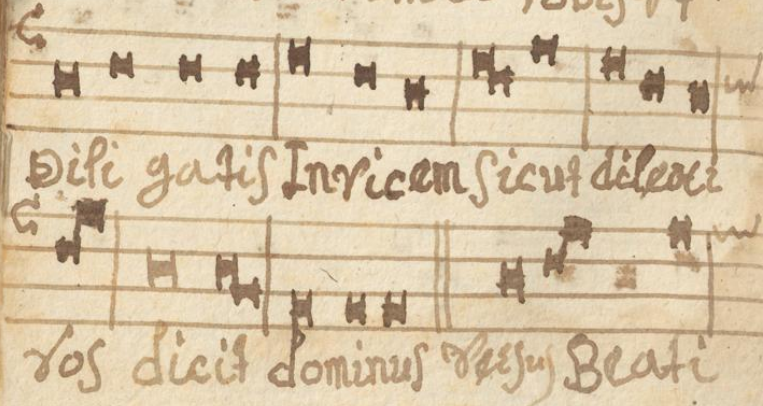 Dili gatis Invicem sicut dilexi
vos dicit dominus Versus Beati